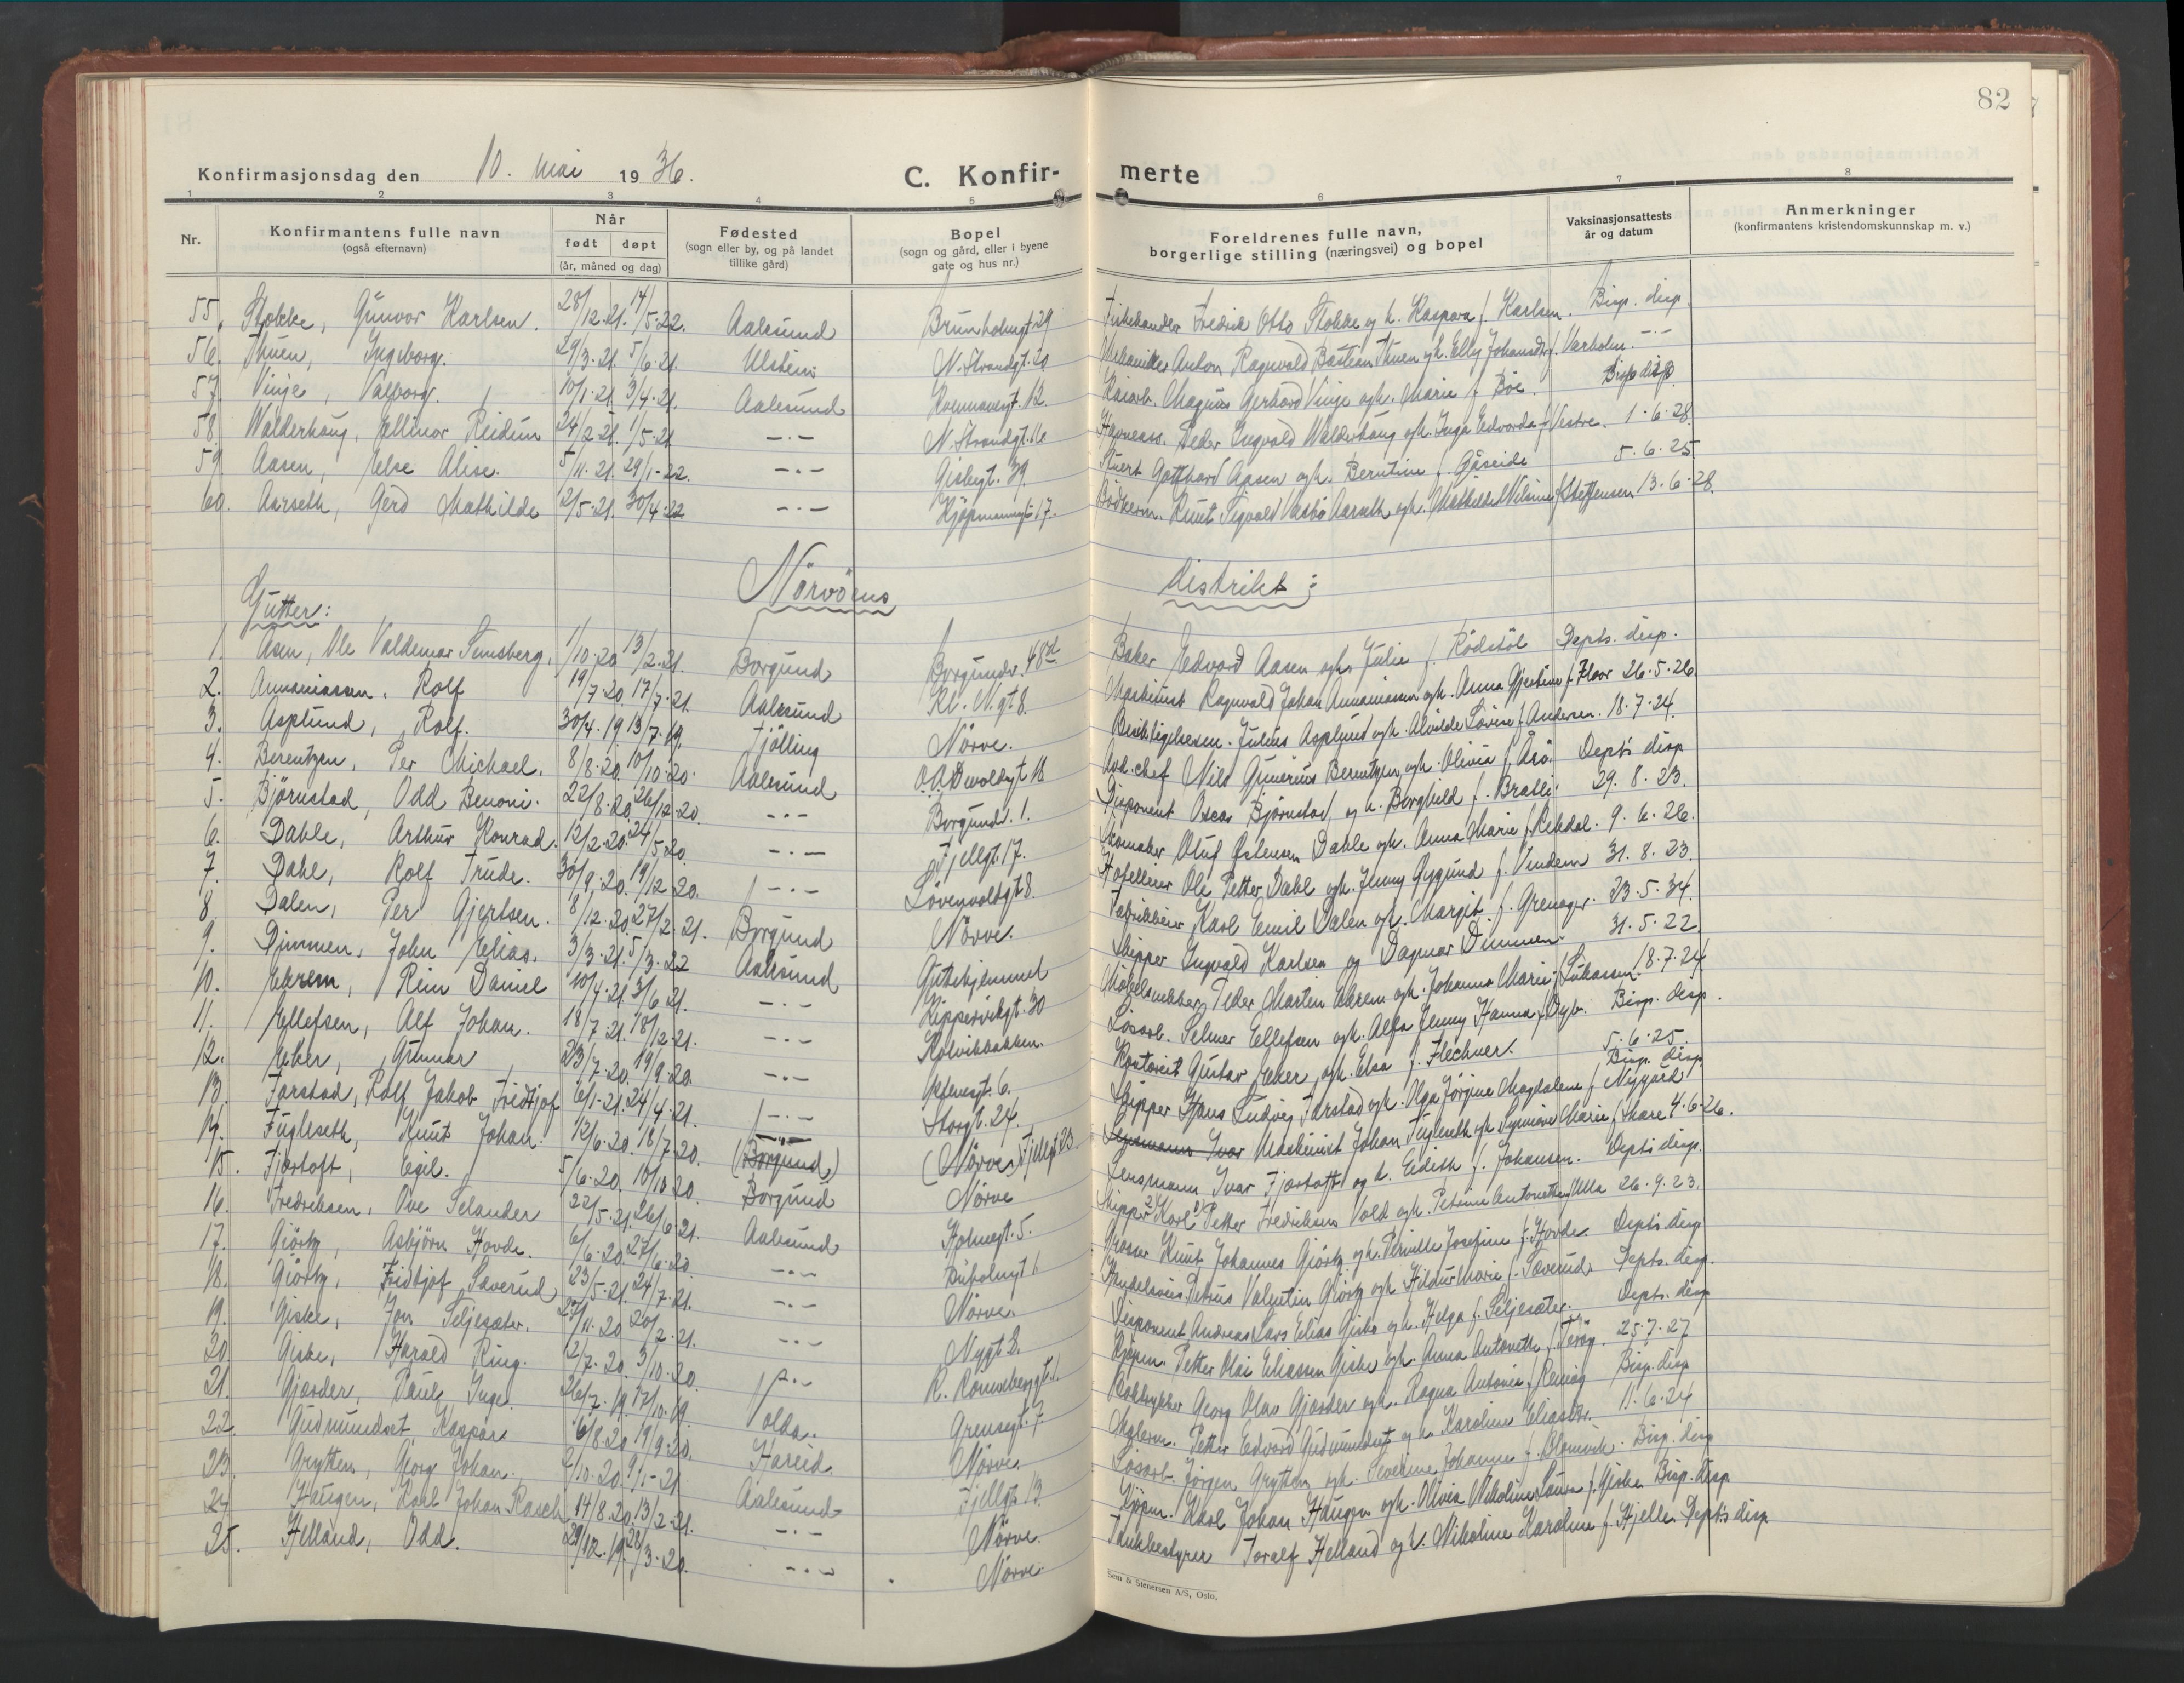 82
Konfirmasjonsdag den 10. mai 1936. C. Konfir- merte
1 2 3 4 5 6 7 8
Nr. Konfirmantens fulle navn (også efternavn) Når født døpt (år, måned og dag) Fødested (sogn eller by, og på landet tillike gård) Bopel (sogn og gård, eller i byene gate og hus nr.) Foreldrenes fulle navn, borgerlige stilling (næringsvei) og bopel Vaksinasjonsattests år og datum Anmerkninger (konfirmantens kristendomskunnskap m. v.)
55. Stokke, Gunvor Karlsen. 28/12.21. 14/5.22. Aalesund Brunholmgt. 29 Fiskehandler Fredrik Otto Stokke og h. Kaspara f. Karlsen. Bisp. disp.
56. Thuen, Ingeborg. 29/3.21. 5/6.21. Ulstein N. Strandgt. 20 Mekaniker Anton Ragnvald Bastian Thuen og h. Elly Johansdtr. f. Varholm. -.-
57. Vinje, Valborg. 10/1.21. 3/4.21. Aalesund 12. Kaiarb. Magnus Gerhard Vinje og h. Marie f. Böe. Bisp. disp.
58. Walderhaug, Ellinor Reidun 24/2.21. 1/5.21 -.- N. Strandgt. 16 Havneass. Peder Ingvald Walderhaug og h. Inga Edvarda f. Vestre. 1.6.28.
59. Aasen, Else Alise. 5/11.21. 29/1.22. -.- Gisbegt. 39. Stuert Gotthard Aasen og h. Berntine f. Gåseide 5.6.25
60. Aarseth, Gerd Mathilde 12/5.21. 30/4.22 -.- Kjöpmannsgt. 17. Bödkerm. Knut Sigvald Aarseth og h. Mathilde Nilsine f. Steffensen 13.6.28.
Nörvöens distrikt:
Gutter:
1. Åsen, Ole Valdemar Tunsberg. 1/10.20 13/2.21. Borgund Borgundv. 48 Baker Edvard Aasen og h. Julie f. Rödstöl Depts. disp.
2. Annaniassen, Rolf 19/7.20. 17/7.21. Aalesund Kl. N. gt 8. Maskinist Ragnvald Johan Annaniassen og h. Anna Gjertine f. Floor 26.5.26.
3. Asplund, Rolf. 30/4.19 13/7.19. Tjölling Nörve. Julius Asplund og h. Alvilde Lovise f. Andersen. 18.7.24.
4. Berentzen, Per Michael. 8/8.20. 10/10.20. Aalesund O.A. Devoldsgt 18 Avd.chef Nils Gunerius Berentzen og h. Olivia f. Årö. Dept's disp
5. Björnstad, Odd Benoni. 22/8.20 26/12.20. -.- Borgundv. 1. Disponent Oscar Björnstad og h. Borghild f. Bratli 29.8.23.
6. Dahle, Arthur Konrad. 12/2.20. 24/5.20. -.- Fjellgt. 17. Skomaker Oluf Østensen Dahle og h. Anna Marie f. Rekdal. 9.6.26.
7. Dahl, Rolf Trude. 30/9.20. 19/12.20. -.- Lövenvoldgt 8. Hotelleier Ole Petter Dahl og h. Jenny Gygund f. Vindem 31.8.23.
8. Dalen, Per Gjertsen. 8/12.20. 27/2.21. Borgund Nörve. Fabrikkeier Karl Emil Dalen og h. Margit f. Grenager. 23.5.34.
9. Dimmen, John Elias. 3/3.21. 5/3.22 Aalesund Guttehjemmet Skipper Ingvald Karlsen og Dagmar Dimmen. 31.5.22
10. Ekrem, Rein Daniel 10/4.21. 3/6.21. -.- Kippervikgt. 30 Möbelsnekker Peder Martin Ekrem og h. Johanna Marie f. Lukassen. 18.7.24
11. Ellefsen, Alf Johan. 18/7.21. 18/12.21. -.- Kolvikbakken. Lösarb. Selmer Ellefsen og h. Alfa Jenny Hanna f. Dyb. Bisp. disp.
12. Eker, Gunnar 23/7.20. 19/9.20. -.- 6. Kontorist Gustav Eker og h. Elsa f. Flechner. 5.6.25.
13. Farstad, Rolf Jakob Fridtjof 6/1.21. 24/4.21. -.- Storgt. 24. Skipper Hans Ludvig Farstad og h. Olga Jörgine Magdalene f. Nygård Bisp. disp
14. Fugleseth, Knut Johan. 12/6.20. 18/7.20. (Borgund) (Nörve) Fjellgt. 23. Lensmann Ivar Maskinist Johan Fugleseth og h. Synnöve Marie f. Mare 4.6.26.
15. Fjørtoft, Egil. 5/6.20. 10/10.20. Borgund Nörve Lensmann Ivar Fjørtoft og h. Edith f. Johansen. Dept's disp.
16. Fredriksen, Ove Selander 22/5.21. 26/6.21. Aalesund Holmegt. 5. Skipper Karl Petter Fredriksen Vold og h. Petrine Antonette f. Ulla 26.9.23.
17. Giörtz, Asbjörn Hovde. 6/6.20. 27/6.20. -.- Buholmgt 1 Grosser Knut Johannes Giörtz og h. Pernille Josefine f. Hovde. Dept's disp
18. Giörtz, Fridtjof Sæverud 23/5.21. 24/7.21. -.- Nörve. Handelsreis. Petrus Valentin Giörtz og h. Hildur Marie f. Sæverud Depts. disp.
19. Giske, Jon Seljesæter. 27/11.20 20/2.21. -.- Nygt. 2. Disponent Andreas Lars Elias Giske og h. Helga f. Seljesæter. Depts. disp
20. Giske, Harald Ring. 12/7.20. 3/10.20. -.- R. Rönnebergsgt. 1. Kjöpm. Petter Olai Eliassen Giske og h. Anna Antonette f. Teröy. 25.7.27
21. Gjærder, Paul Inge. 26/7.19. 17/10.19. Volda. Grensegt. 7 Boktrykker Georg Olus Gjærder og h. Ragna Antonie f. Remöy Bisp. disp
22. Gudmundset Kaspar 6/8.20. 19/9.20. Hareid. Nörve. Meglerm. Petter Edvard Gudmundset og h. Karoline Eliasdtr. 11.6.24
23. Grytten, Georg Johan. 2/10.20. 9/1.21. Aalesund Fjellgt. 13. Lösarb. Jörgen Grytten og h. Severine Johanne f. Blomvik. Bisp. disp
24. Haugen, Karl Johan Rasch 14/8.20. 13/2.21. -.- Nörve. Kjöpm. Karl Johan Haugen og h. Olivia Nikoline Laura f. Giske Bisp. disp
25. Helland, Odd. 29/12.19. 28/3.20. -.- Nörve. Toralf Helland og h. Nikoline Karoline f. Hjelle. Dept's disp
Sem & Stenersen A/S, Oslo.